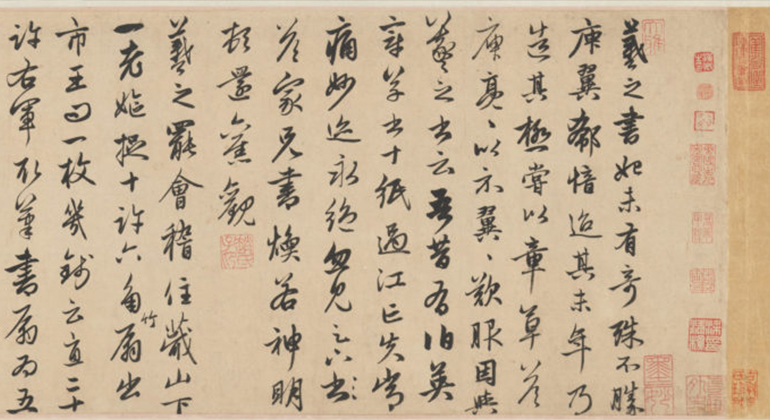 羲之書始未有奇殊不勝
庾翼郗愔迨其末年乃
造其極嘗以章草答
庾亮〻以示翼〻歎服因與
羲之書云吾昔有伯英
章草書十紙過江亡失常
痛妙迹永絕忽見足下書
答家兄書煥若神明
頓還舊觀
羲之罷會稽住蕺山下
一老嫗捉十許六角竹扇出
市王曰一枚幾錢云直二十
許右軍取筆書扇為五